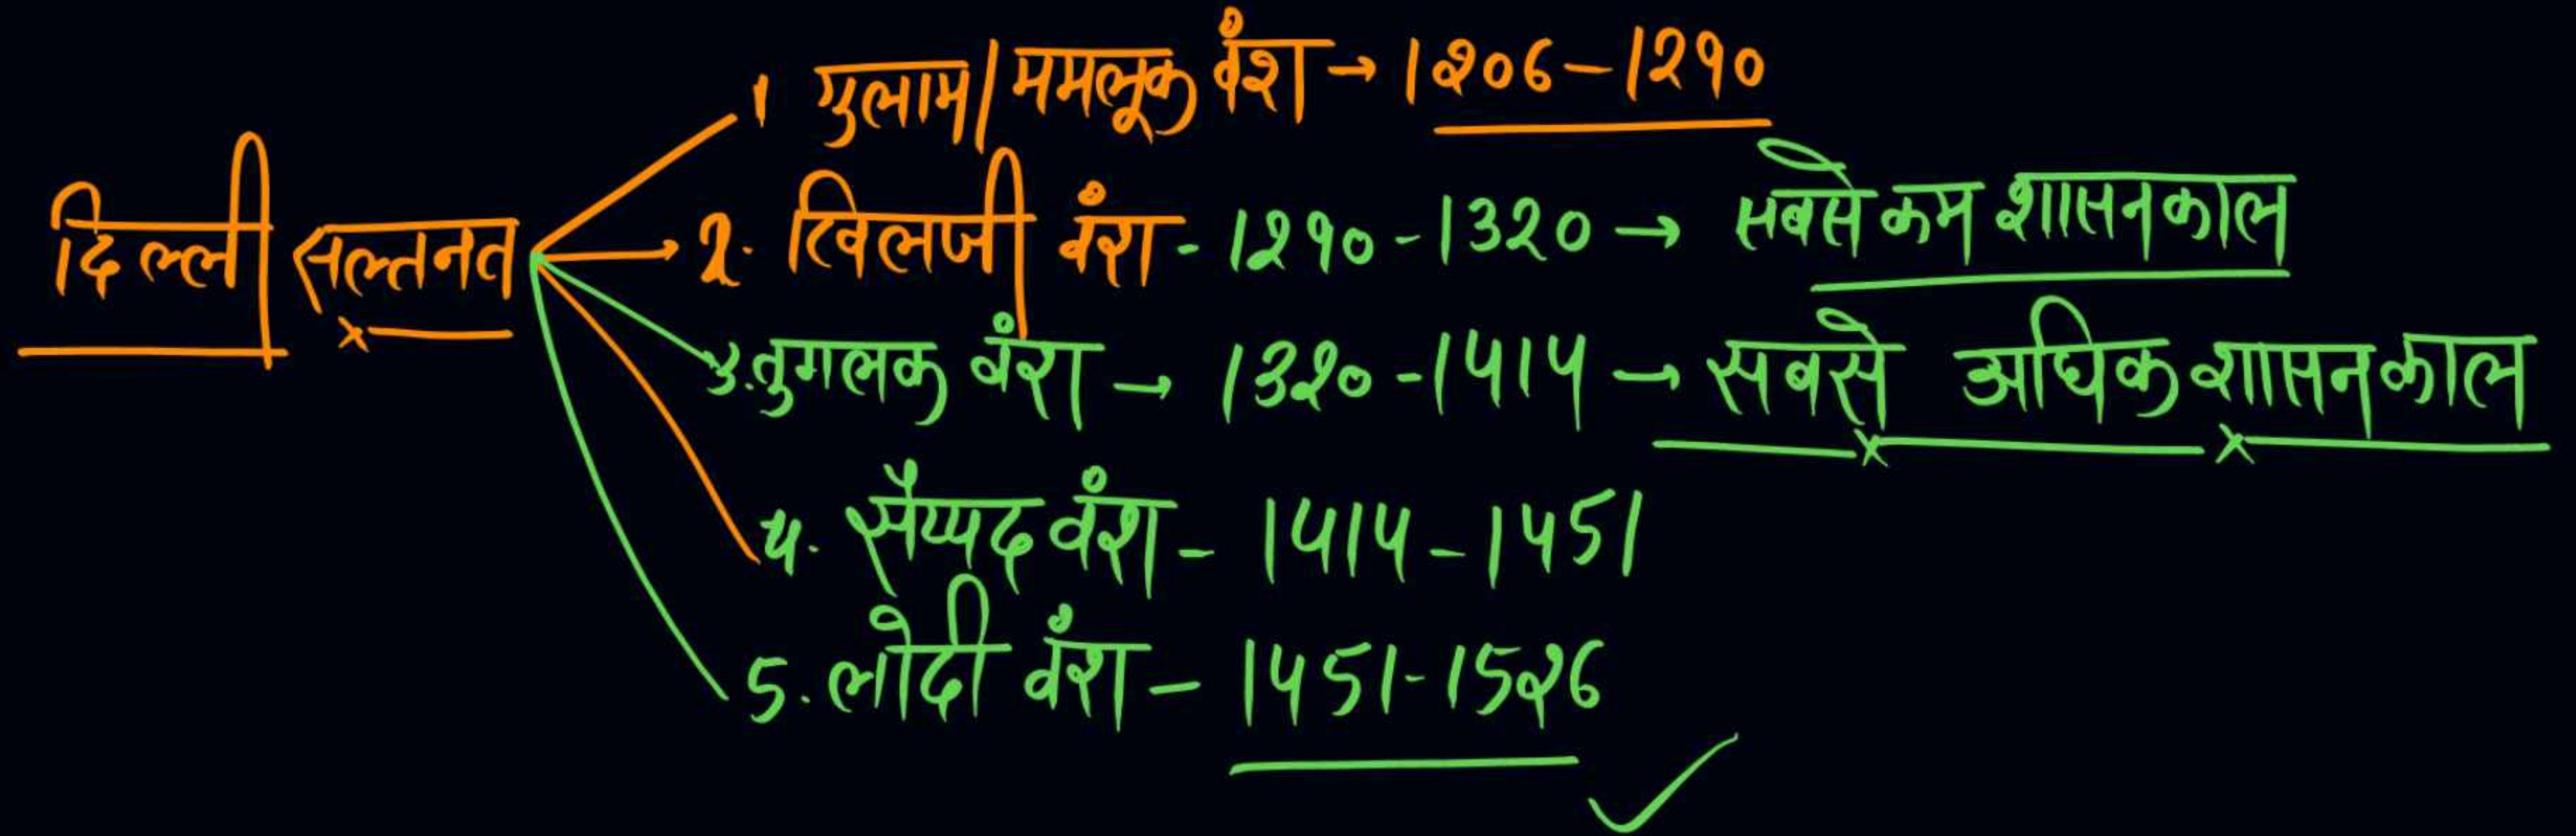 दिल्ली सल्तनत
1 गुलाम/ममलूक वंश → 1206-1290
2. खिलजी वंश - 1290-1320 → सबसे कम शासनकाल
3. तुगलक वंश → 1320-1414 → सबसे अधिक शासनकाल
4. सैय्यद वंश - 1414-1451
5. लोदी वंश - 1451-1526